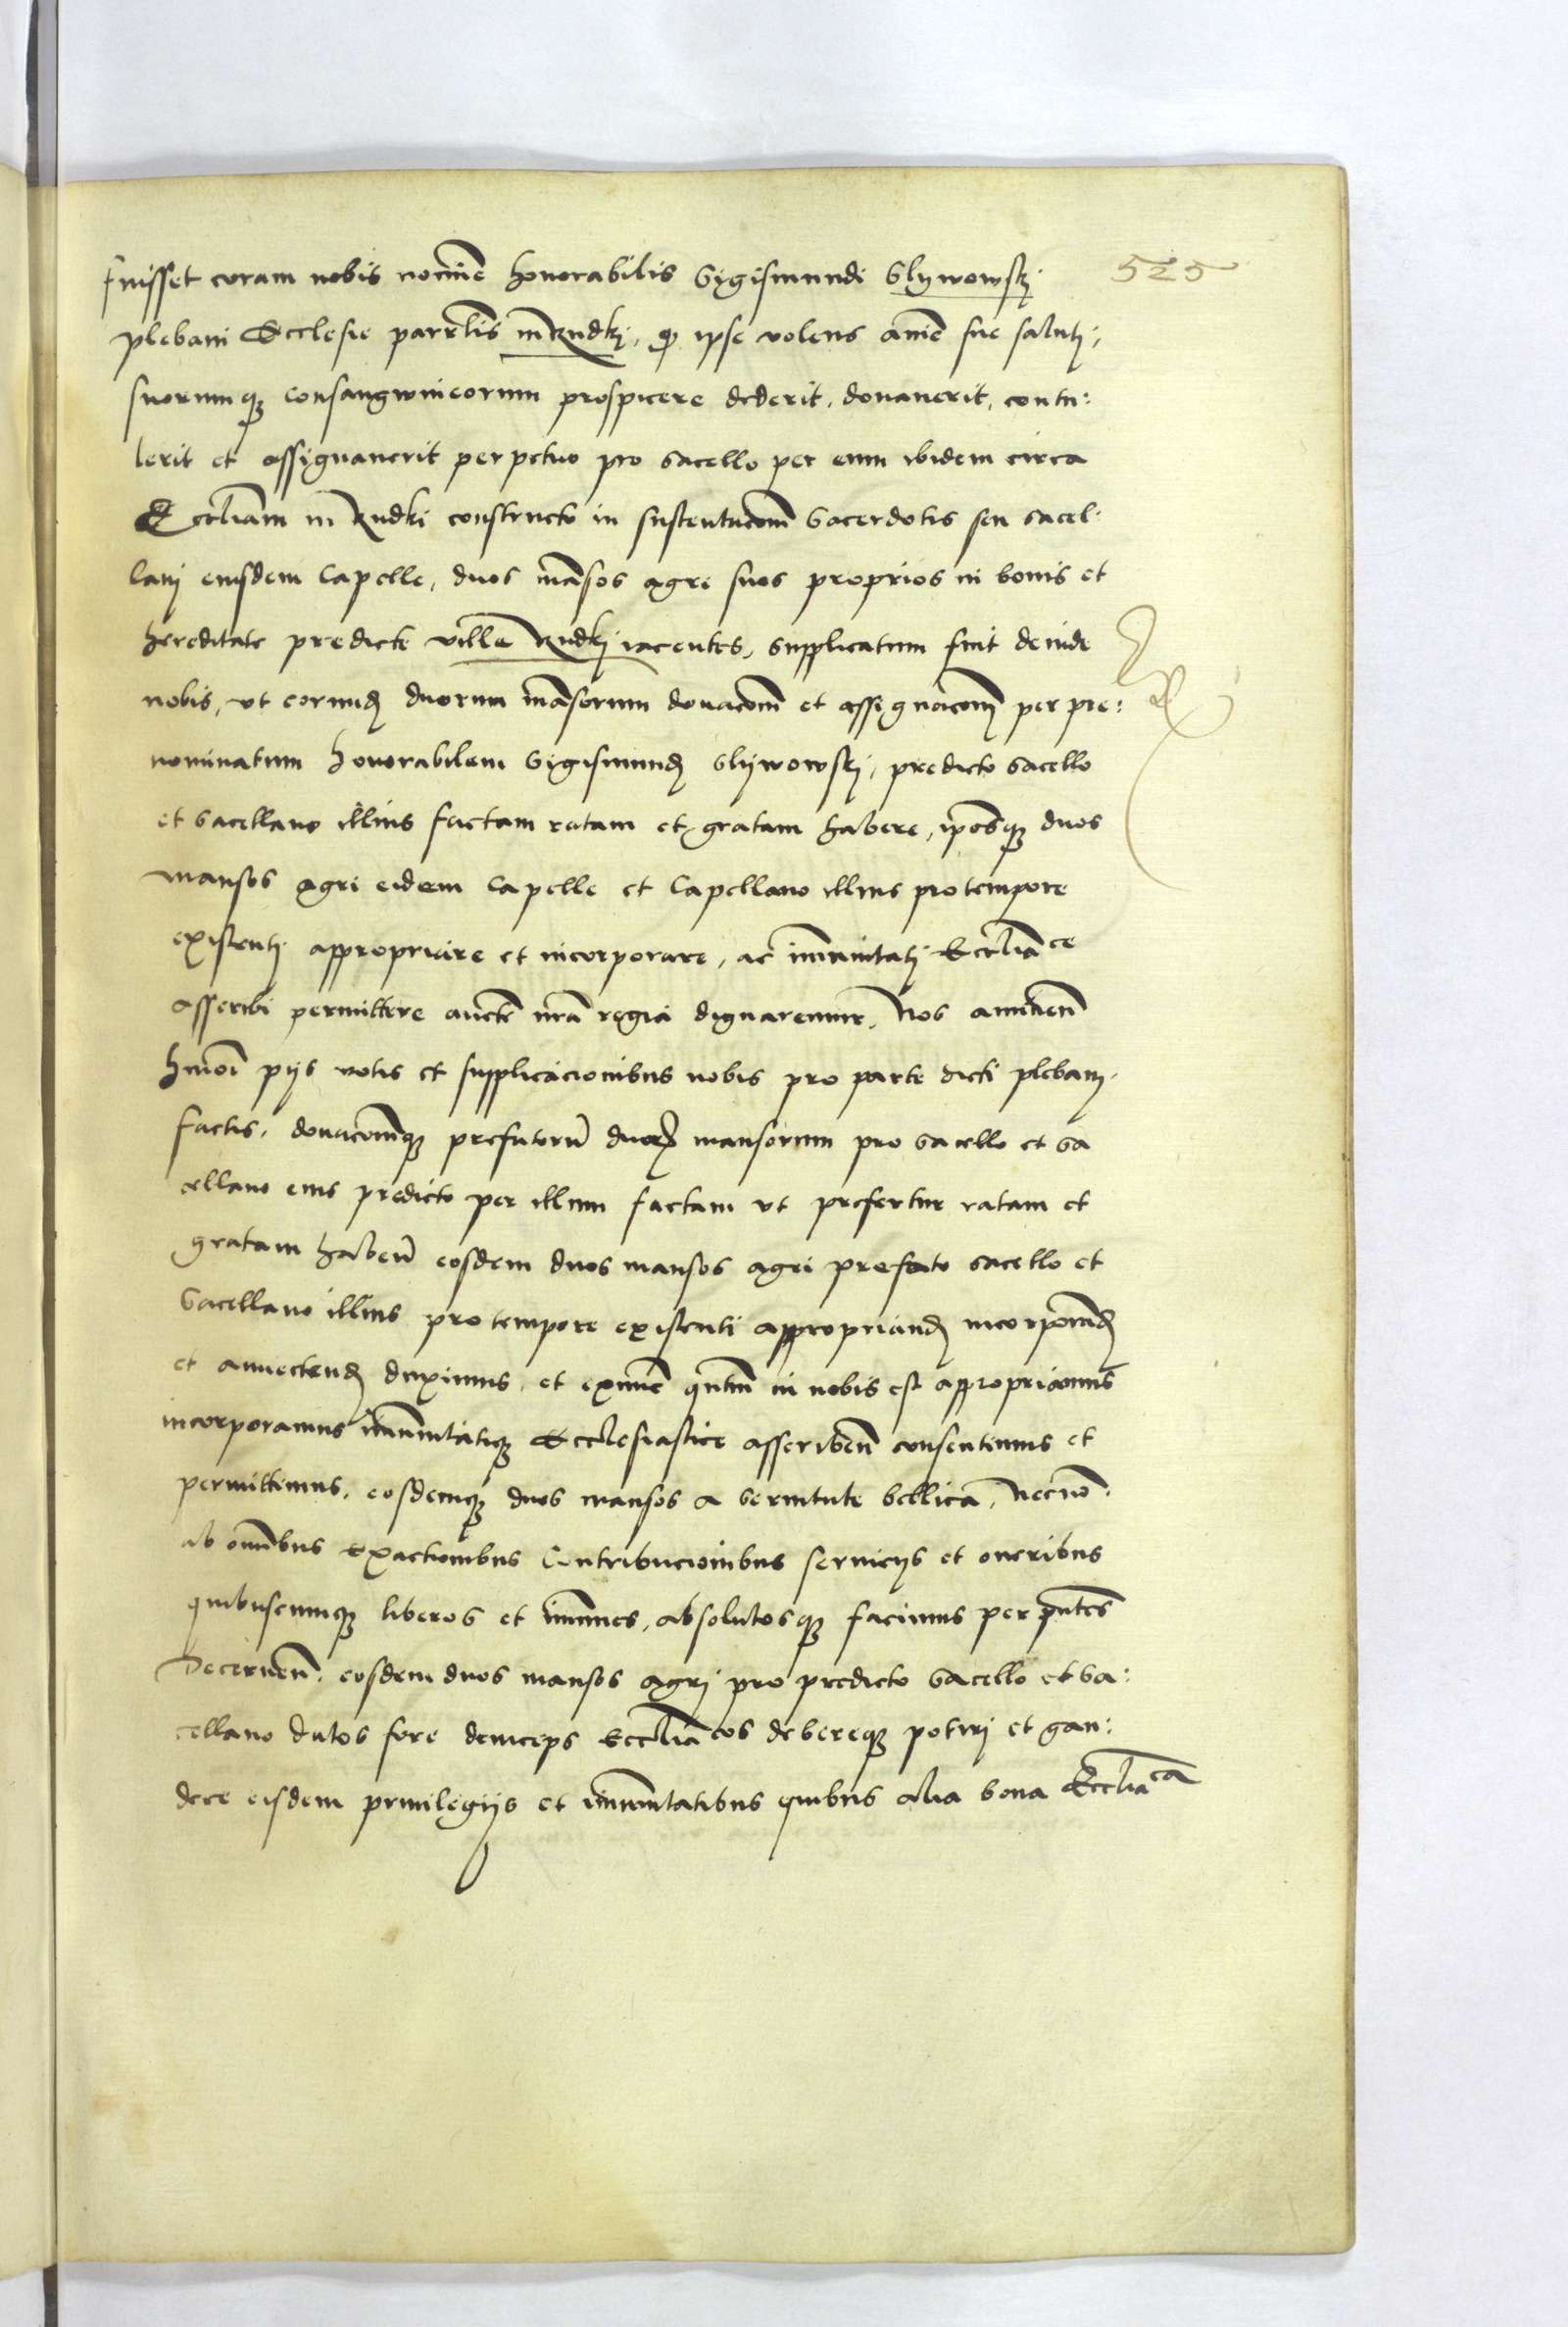 fuisset coram nobis nomine honorabilis Sigismundi Slywowski 525
plebani Ecclesie parrchlis in Rudki, q ipse volens anime sue saluti,
suorumq consangwineorum prospicere dederit, donauerit, contu:
lerit et assignauerit perpetuo pro sacello per eum ibidem circa
Eccliam in Rudki constructo in sustentacom Sacerdotis seu sacel:
lani eiusdem Capelle, duos mansos agri suos proprios in bonis et
hereditate predicte ville Rudki iacentes, supplicatum fuit deinde
nobis, vt eorund duorum mansorum donacom et assignacom per pre:
nominatum honorabilem Sigismund Slywowski, predicto sacello
et sacellano illius factam ratam et gratam habere, iposq duos
mansos agri eidem Capelle et Capellano illius pro tempore
existenti appropriare et incorporare, ac immunitati Eccliace
asscribi permittere aucte nra regia dignaremur, Nos annuen
hmoi pijs votis et supplicacionibus nobis pro parte dicti plebani
factis, donacomq prefatoru duor mansorum pro sacello et sa
cellano eius predicto per illum factam vt prefertur ratam et
gratam haben eosdem duos mansos agri prefato sacello et
Sacellano illius pro tempore existenti appropriand incorporand
et annectend duximus, et qntum in nobis est appropriamus
incorporamus immunitatiq Ecclesiastice asscriben consentimus et
permittimus, eosdemq duos mansos a seruitute bellica, necno
ab omnibus exactionibus Contribucionibus seruicijs et oneribus
quibuscumq liberos et immunes, absolutosq facimus per pntes
Decernen eosdem duos mansos agri pro predicto sacello et sa:
cellano datos fore deinceps Eccliacos debereq potiri et gau:
dere eisdem priuilegijs et immunitatibus quibus alia bona Eccliaca